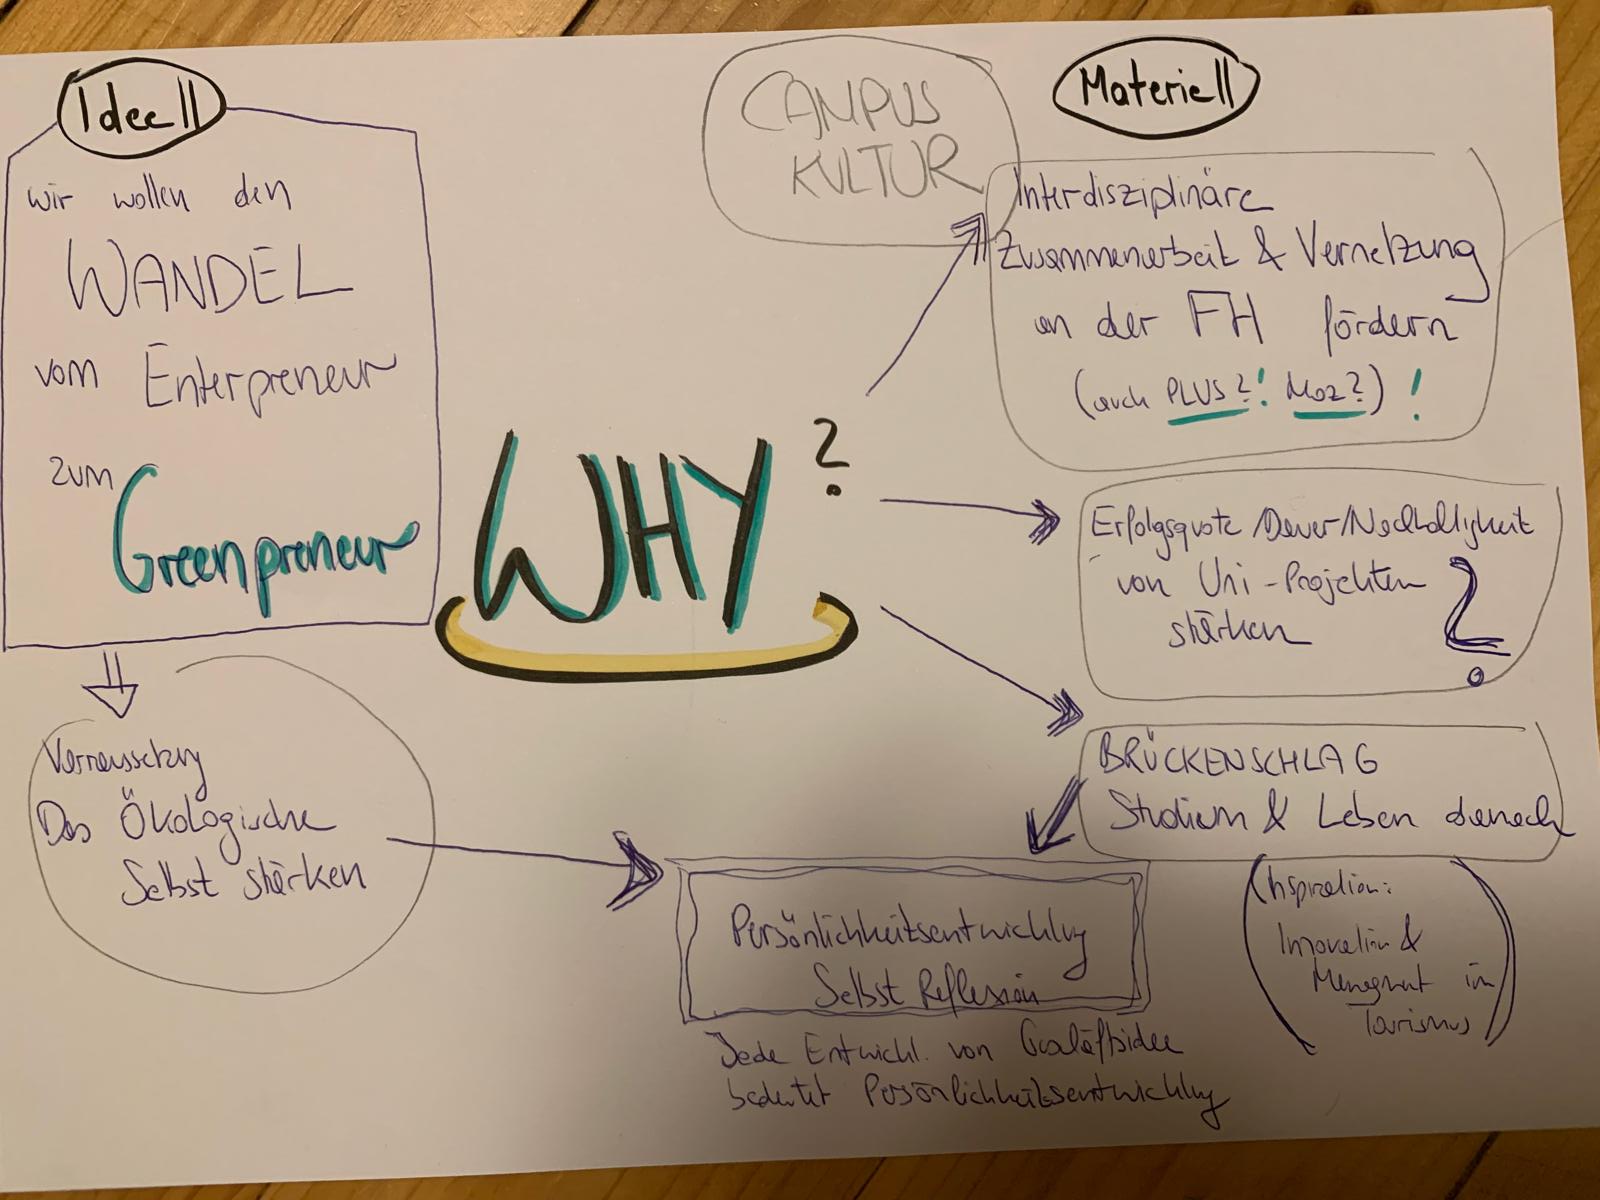 Ideell
wir wollen den
WANDEL
vom Enterpreneur
zum
Greenpreneur
Vorraussetzung
Das Ökologische
Selbst stärken
WHY?
CAMPUS
KULTUR
Materiell
Interdisziplinäre
Zusammenarbeit & Vernetzung
an der FH fördern
(auch PLUS?! Moz?) !
Erfolgsquote /Dauer/Nachhaltigkeit
von Uni-Projekten
stärken ?
BRÜCKENSCHLAG
Studium & Leben danach
(Inspiration:
Innovation &
Management im
Tourismus)
Persönlichkeitsentwicklung
Selbst Reflexion
Jede Entwickl. von Geschäftsidee
bedeutet Persönlichkeitsentwicklung